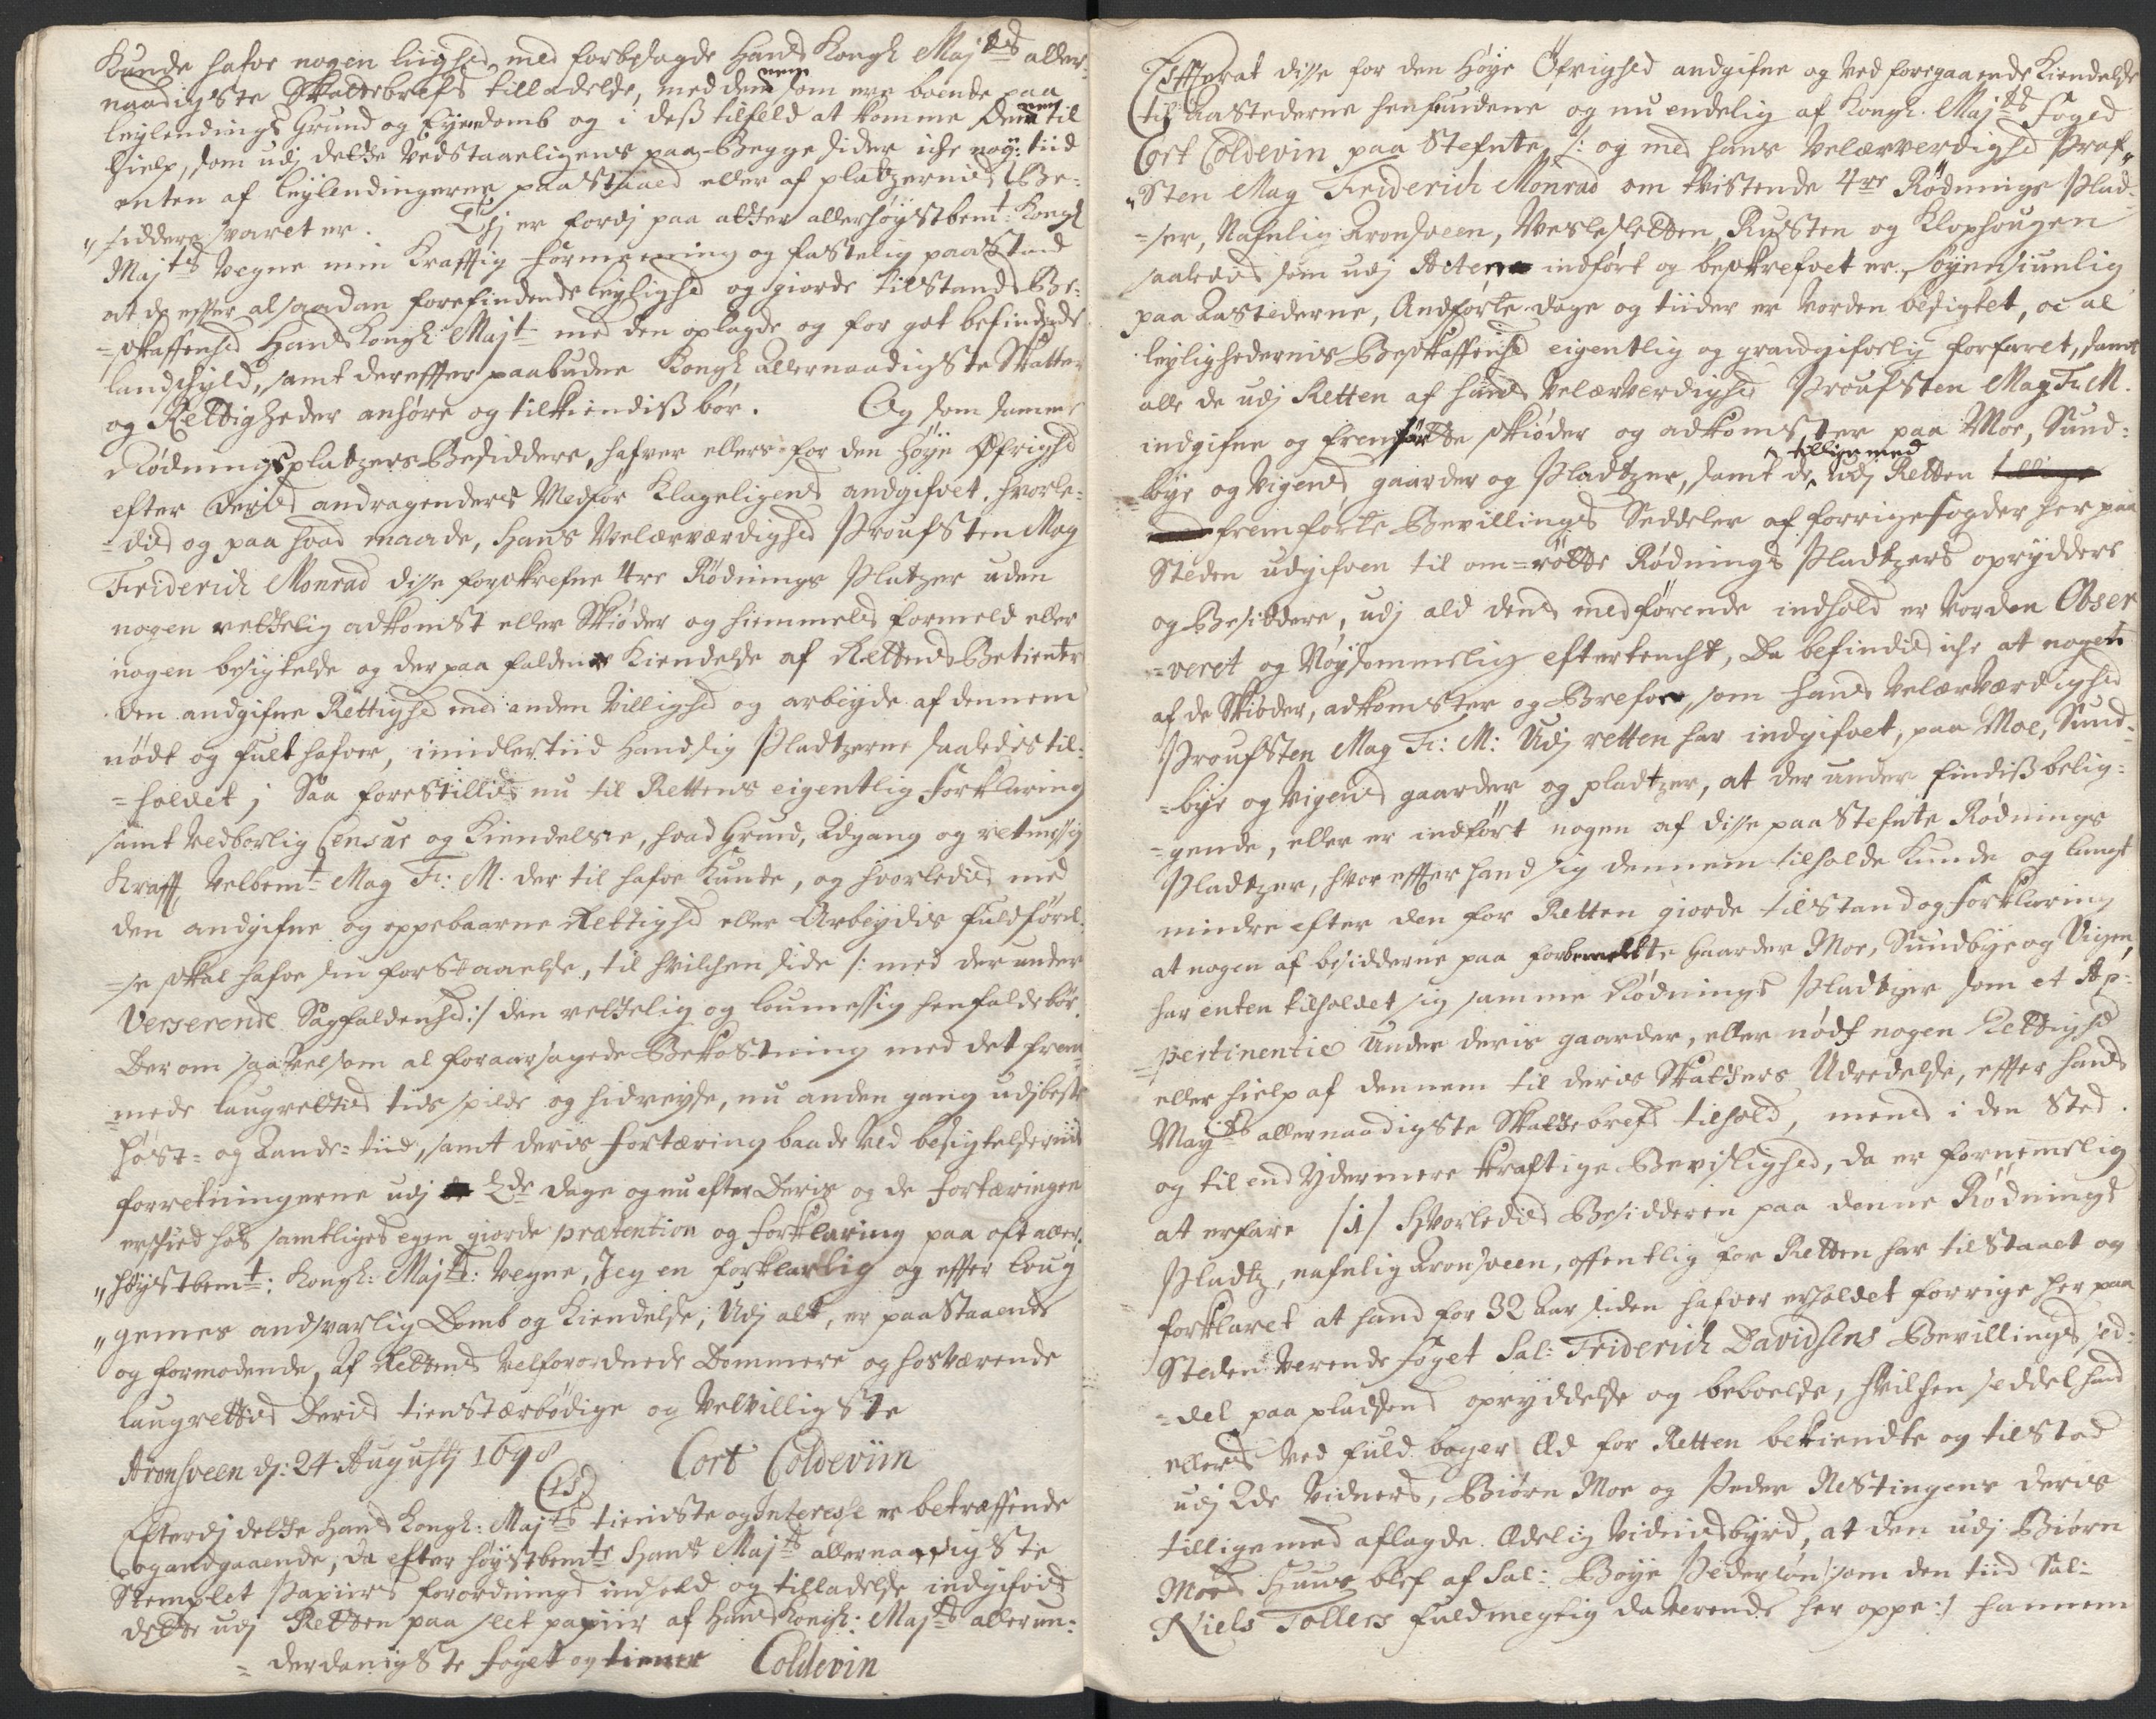 Kunde hafve nogen liighed med forbesagde Hands Kongl Majtds aller-
naadigste Skattebrefs tilladelse, med dennem som ere boende paa
leylendings Grund og Eyendomb og i deß tilfeld at komme dennem til
hielp, som udj dette vedstaaeligens paa Begge sider iche nog: tiid
enten af leylendingerne paastaaed eller af pladzernis Be-
"siddere svaret er. Thj er fordj paa atter allerhøystbemt: Kongl
Majts Vegne min Kraftig formeening og fastelig paastand
at de effter al saadan forefindende leylighed og giorde tilstand Be-
=skaffenhed Hands Kongl Majt med den oplagde og for got befindende
landschyld, samt dereffter paabudne Kongl allernaadigste Skatter
og Rettigheder anhøre og tilkiendiß bør. Og som samme
Rødningspladzers Besiddere, hafver ellers for den høye Øfrighd
efter deris andragenders Medfør Klageligend andgifvet, hvorle-
=dis og paa hvad maade, Hans Velærværdighed Proufsten Mag
Friderich Monrad disse forskrefne 4re Rødnings Platzer uden
nogen rettelig adkomst eller Skiøder og hiemmels formeld eller
nogen besigtelse og der paa faldene Kiendelse af Rettens Betiente
den andgifne Rettighed med anden Villighed og arbeyde af dennem
nødt og fult hafver, imidlertiid hand sig Pladtzerne saaledis til-
=holdet; Saa forestillis nu til Rettens eigentlig forklaring
samt vedborlig Censur og Kiendelse, hvad Grund, Adgang og retmessig
Krafft, Velbemt Mag Fr: M. der til hafve Kunde, og hvorledis med
den andgifne og oppebaarne Rettighed eller Arbeydis fuldførel-
=se skal hafve sin forstaaelse, til hvilchen side /: med der under
Verserende Sagfaldenhed :/ den rettelig og loumessig henfalde bør.
Der om saavelsom al foraarsagede Bekostning med det frem-
=mede laugrettis tids spilde og hidreyse, nu anden gang udj beste
høst= og Aande=tiid, samt deris fortæring baade ved besigtelserne
forretningerne udj 2de dage og nu efter deris og de fortæringen
erhsied hos samtliges egen giorde prætention og forklaring paa oft aller-
"høystbemt: Kongl: Majts: Vegne, Jeg en forklarlig og effter loug
"gemes andsvarlig Domb og Kiendelse; Udj alt, er paastaaende
og formodende, af Rettens velforordnede Dommere og hosværende
laugrettis Deris tienstærbødige og velvilligste
Aronsveen dj: 24 Augustj 1698 Cort Coldeviin
(LS)
Efterdj dette hands Kongl: Majts tieniste og Interesse er betreffende
og andgaaende, da efter høystbemte Hans Majts allernaadigste
Stemplet Papiirs forordnings indhold og tilladelse indgifves
dette udj Retten paa slet papiir af Hans Kongl: Majts allerun-
=derdanigste foget og tiener Coldevin
Effterat disse for den Høye Øfrighed andgifne og ved foregaaende Kiendelse
til Aastederne henfundene og nu endelig af Kongl. Majts Foged
Cort Coldevin paa Stefnte, /: og med hans Velærverdighed Prof-
"sten Mag Friderich Monrad om tvistende 4re Rødnings Plad-
=ser, Nafnlig Aronsveen, Weslesletten, Rusten og Klophougen
saaledis som udj Acten indført og beskrefvet er, øyensiunlig
paa Aastederne, Andførte dage og tiider er vorden besigtet, oc al
leylighedernis Beskaffenhed eigentlig og grandgifvelig forfaret, samt
alle de udj Retten af hands Velærverdighed Proufsten Mag Fr M.
indgifne og fremførte skiøder og adkomster paa Moe, Sund-
bye og Vigens gaarder og Pladtzer, samt de tilligemed udj Retten
fremførte Bevillings Seddeler af forrige fogder her paa
Steden udgifven til om=rørte Rødnings Pladtzers oprydders
og Besiddere, udj ald dends medførende indhold er vorden Obser
=veret og Nøysommelig eftertencht, Da befindis iche at nogen
af de Skiøder, adkomster og Brefve, som hands Velærværdighed
Proufsten Mag Fr: M: Udj retten har indgifvet, paa Moe, Sund-
=bye og Vigens gaarder og pladtzer, at der under findiß belig-
=gende, eller er indført nogen af disse paa Stefnte Rødnings
Pladtzer, hvor effter hand sig dennem tilholde Kunde og langt
mindre efter den for Retten giorde tilstand og forklaring
at nogen af besidderne paa forbemelte gaarder Moe, Sundbye og Vigen,
har enten tilholdet sig samme Rødnings Pladtzer som et Ap-
=pertinentie Under deris gaarder, eller nødt nogen Rettighed
eller hielp af dennem til deris Skatters Udredelse, effter hands
Mayts allernaadigste Skattebrefs tilhold, mend i den Sted.
og til end Ydermere kraftige Bevislighed, da er fornemelig
at erfare /1/ Hvorledis Besidderen paa denne Rødnings
Pladtz, nafnlig Aronsveen, offentlig for Retten har tilstaaet og
forklaret at hand for 32 Aar siden hafver erholdet forrige her paa
Steden verende foget Sal: Friderich Davidsens Bevillings sed-
=del paa pladsens opryddelse og beboelse, hvilchen seddel hand
ellers ved fuld boger Æd for Retten bekiendte og tilstod
udj 2de vidners, Biørn Moe og Peder Nestingens deris
tilligemed aflagde Ædelig Vidnisbyrd, at den udj Biørn
Moes Huus blef af Sal: Boye Pedersøn /: som den tiid Sal:
Niels Tollers fuldmegtig da verende her oppe :/ hannem